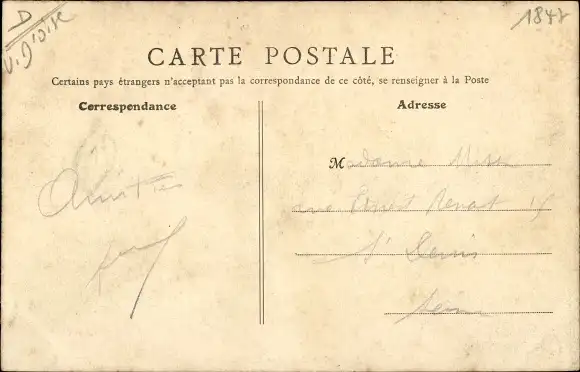 D
V. d'Oise
1847
CARTE POSTALE
Certains pays étrangers n'acceptant pas la correspondance de ce côté, se renseigner à la Poste
Correspondance
Adresse
Madame
rue Ernest Renan 15
St Denis
Seine
Amitiés